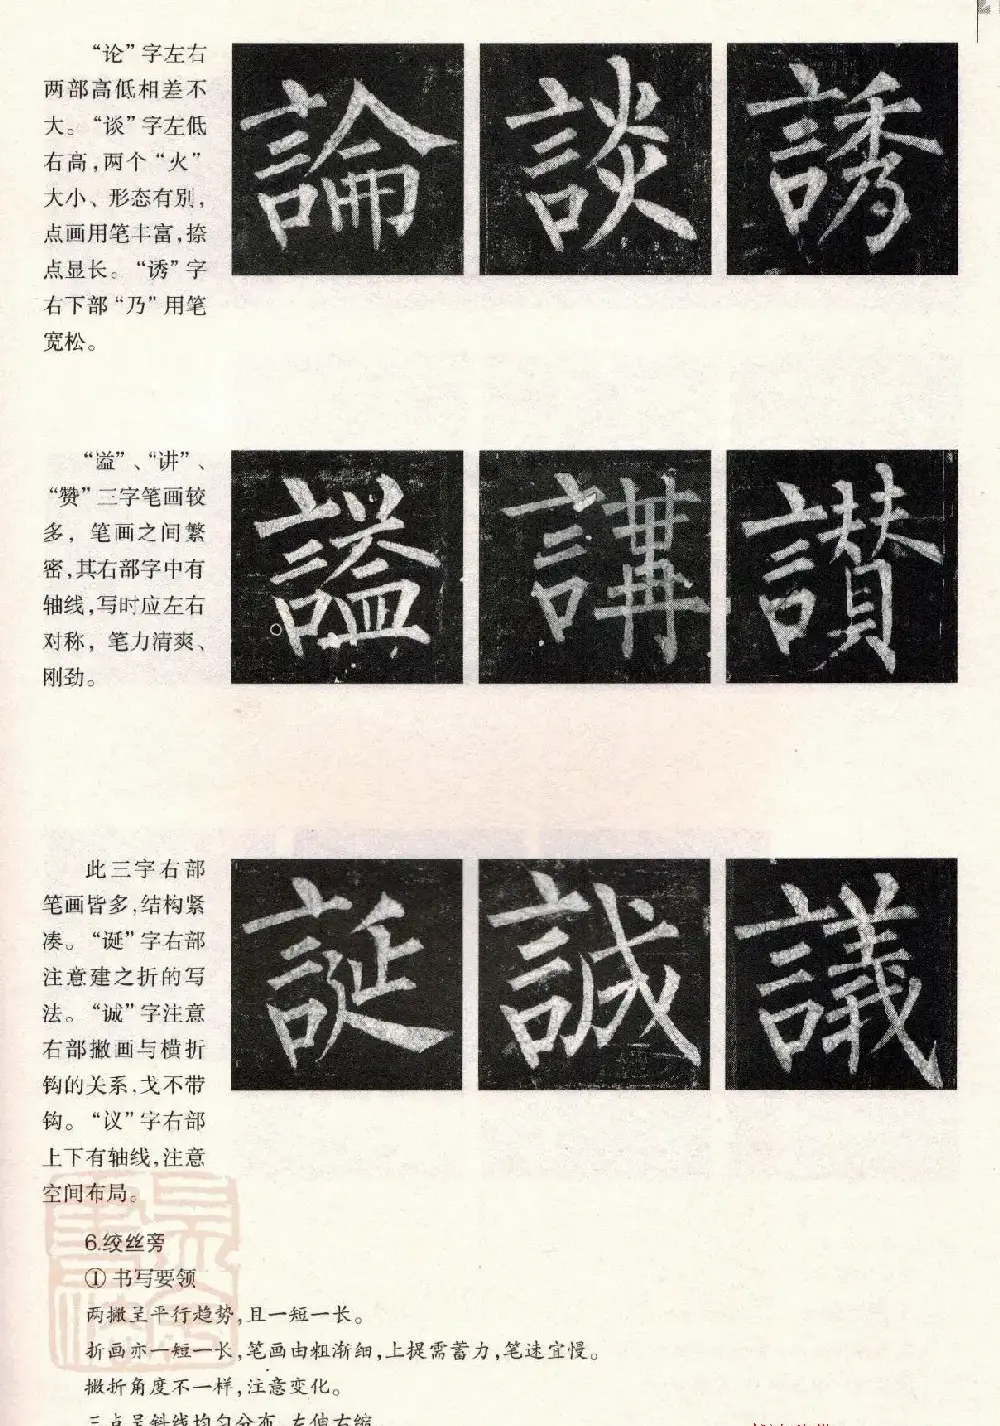 “论”字左右
两部高低相差不
大。“谈”字左低
右高,两个“火”
大小、形态有别,
点画用笔丰富,捺
点显长。“诱”字
右下部“乃”用笔
宽松。
論 談 誘
“谥”、“讲”、
“赞”三字笔画较
多, 笔画之间繁
密,其右部字中有
轴线,写时应左右
对称, 笔力清爽、
刚劲。
謚 講 讃
此三字右部
笔画皆多,结构紧
凑。“诞”字右部
注意建之折的写
法。“诚”字注意
右部撇画与横折
钩的关系,戈不带
钩。“议”字右部
上下有轴线,注意
空间布局。
誕 誠 議
6.绞丝旁
①书写要领
两撇呈平行趋势,且一短一长。
折画亦一短一长,笔画由粗渐细,上提需蓄力,笔速宜慢。
撇折角度不一样,注意变化。
三点呈斜线均匀分布,左伸右缩。